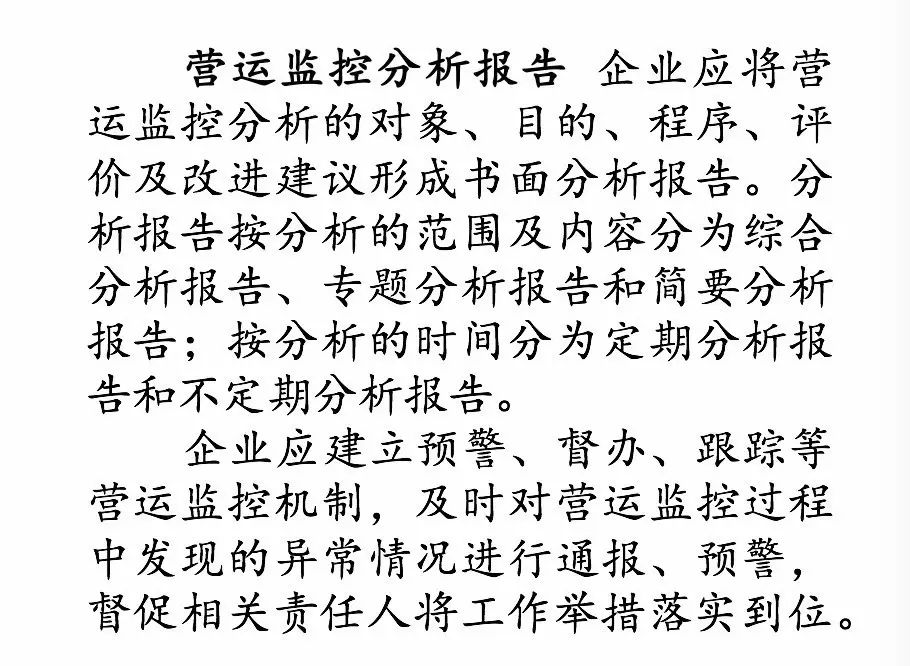 营运监控分析报告 企业应将营
运监控分析的对象、目的、程序、评
价及改进建议形成书面分析报告。分
析报告按分析的范围及内容分为综合
分析报告、专题分析报告和简要分析
报告；按分析的时间分为定期分析报
告和不定期分析报告。
企业应建立预警、督办、跟踪等
营运监控机制，及时对营运监控过程
中发现的异常情况进行通报、预警，
督促相关责任人将工作举措落实到位。